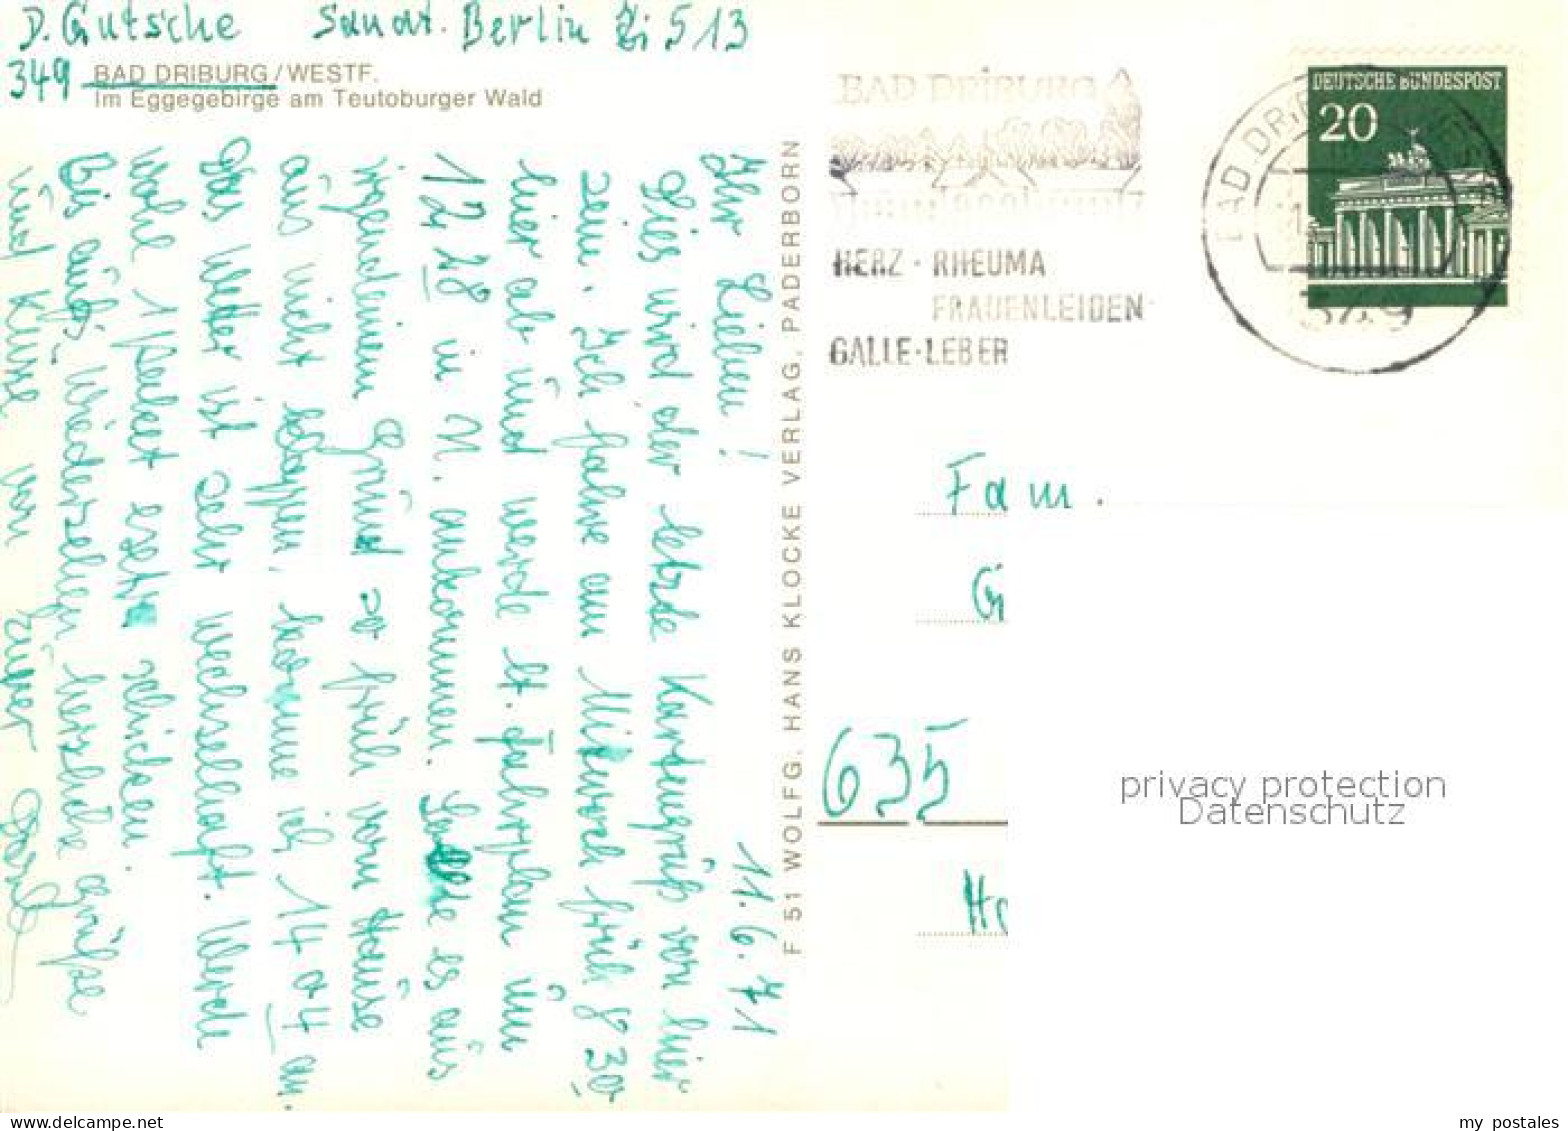 D. Gutsche Sanat. Berlin Zi 513
349 BAD DRIBURG/WESTF.
Im Eggegebirge am Teutoburger Wald
11.6.71
Ihr Lieben!
Dies wird der letzte Kartengruß von hier
sein. Ich fahre am Mittwoch früh 8 30
hier ab und werde lt. Fahrplan um
12 28 in H. ankommen. Sollte es aus
irgendeinem Grund so früh vom Hause
aus nicht klappen, komme ich 14 04 an.
Das Wetter ist sehr wechselhaft. Werde
wohl 1 Paket extra schicken.
Bis aufs Wiedersehen herzliche Grüße
und Küsse von Eurer
F 51 WOLFG. HANS KLOCKE VERLAG, PADERBORN
BAD DRIBURG
HERZ · RHEUMA
FRAUENLEIDEN
GALLE · LEBER
DEUTSCHE BUNDESPOST
20
BAD DRIBURG
349
Fam.
G
635
Ho
privacy protection
Datenschutz
delcampe.net
my_postales